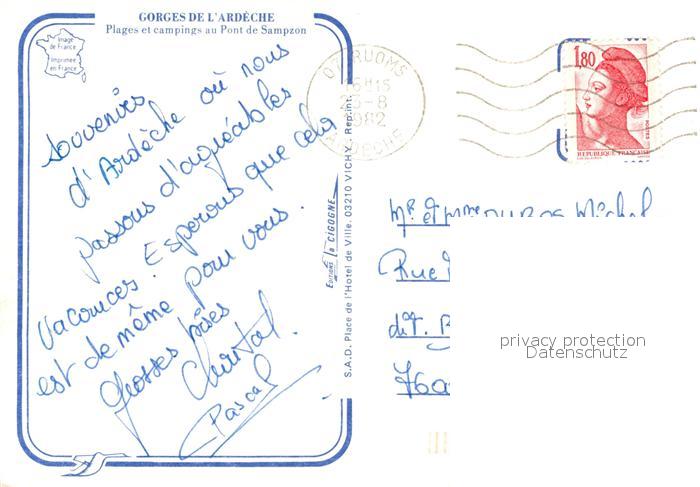 GORGES DE L'ARDÈCHE
Plages et campings au Pont de Sampzon
Image
de France
Imprimée
en France
Souvenirs
d'Ardèche où nous
passons d'agréables
vacances. Esperons que cela
est de même pour vous.
Grosses bises
Chantal.
Pascal
Editions La CIGOGNE
S.A.D. Place de l'Hôtel de Ville. 03210 VICHY - Rep.int.
07 RUOMS
16H15
1982
ARDECHE
1,80
POSTES
REPUBLIQUE FRANÇAISE
Mr et Mme Michel
Rue
760
privacy protection
Datenschutz